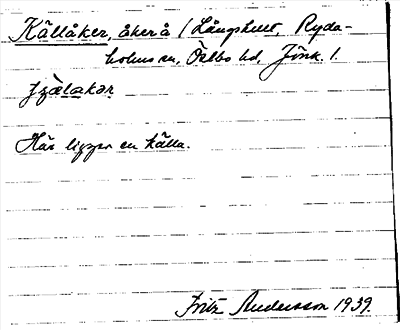 Källåker, åker å 1 Långshult, Ryda-
holms sn, Östbo hd, Jönk. l.
Här ligger en källa.
Fritz Andersson 1939.